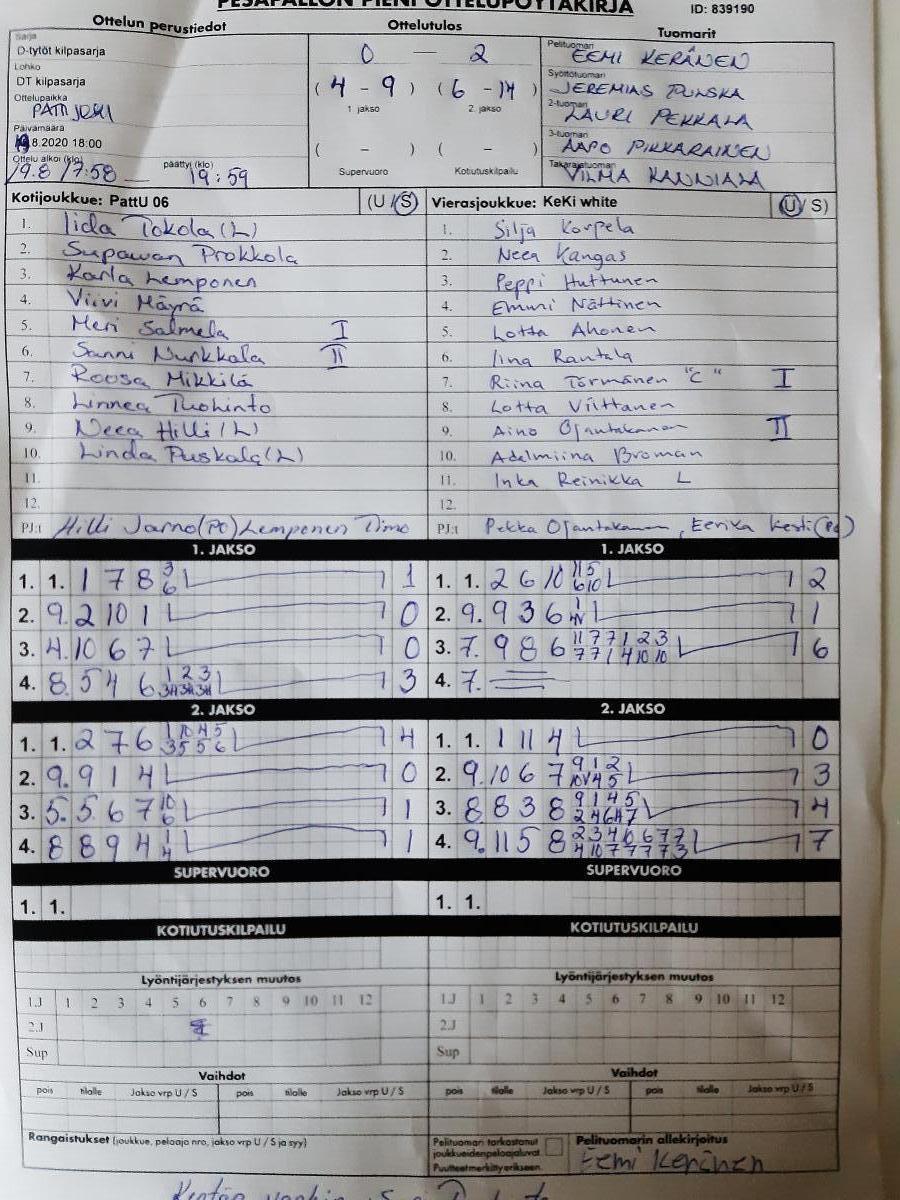 PESÄPALLON PIENI OTTELUPÖYTÄKIRJA
ID: 839190
Ottelun perustiedot
Ottelutulos
Tuomarit
Sarja
D-tytöt kilpasarja
0 — 2
Pelituomari
EEMI KERÄNEN
Lohko
DT kilpasarja
(4 - 9) (6 - 14)
1. jakso 2. jakso
Syöttötuomari
JEREMIAS PUUSKA
Ottelupaikka
PATTIJOKI
2-tuomari
LAURI PEKKALA
Päivämäärä
19.8.2020 18:00
( - ) ( - )
Supervuoro Kotiutuskilpailu
3-tuomari
AAPO PIKKARAINEN
Ottelu alkoi (klo) päättyi (klo)
19.8 17:58 — 19:59
Takarajatuomari
VILMA KANNIALA
Kotijoukkue: PattU 06 (U/S)
1. Iida Tokola (L)
2. Supawan Prokkola
3. Karla Lemponen
4. Viivi Mäyrä
5. Meri Salmela I
6. Sanni Nurkkala II
7. Roosa Mikkilä
8. Linnea Tuohinto
9. Neea Hilli (L)
10. Linda Puskala (L)
11.
12.
PJ:t Hilli Jarno (PO) Lemponen Timo
Vierasjoukkue: KeKi white (U/S)
1. Silja Korpela
2. Neea Kangas
3. Peppi Huttunen
4. Emmi Nättinen
5. Lotta Ahonen
6. Iina Rantala
7. Riina Törmänen "C" I
8. Lotta Viittanen
9. Aino Ojantakanen II
10. Adelmiina Broman
11. Inka Reinikka L
12.
PJ:t Pekka Ojantakanen, Eerika Kesti (Po)
1. JAKSO
1. 1. 1 7 8 3 6 1
2. 9. 2 10 1 0
3. 4. 10 6 7 0
4. 8. 5 4 6 1 2 3 3
1. JAKSO
1. 1. 2 6 10 11 5 6 10 2
2. 9. 9 3 6 1
3. 7. 9 8 6 11 7 7 1 2 3 7 7 1 4 10 10 6
4. 7.
2. JAKSO
1. 1. 2 7 6 1 10 4 5 3 5 5 6 4
2. 9. 9 1 4 0
3. 5. 5 6 7 10 6 1
4. 8 8 9 4 1 4 1
2. JAKSO
1. 1. 1 11 4 0
2. 9. 10 6 7 9 1 2 10 4 5 3
3. 8 8 3 8 9 1 4 5 4
4. 9. 11 5 8 2 3 4 10 6 7 7 4 10 7 7 7 7 3 7
SUPERVUORO
1. 1.
SUPERVUORO
1. 1.
KOTIUTUSKILPAILU
KOTIUTUSKILPAILU
Lyöntijärjestyksen muutos
1.J 1 2 3 4 5 6 7 8 9 10 11 12
2.J
Sup
Lyöntijärjestyksen muutos
1.J 1 2 3 4 5 6 7 8 9 10 11 12
2.J
Sup
Vaihdot
pois tilalle Jakso vrp U / S pois tilalle Jakso vrp U / S
Vaihdot
pois tilalle Jakso vrp U / S pois tilalle Jakso vrp U / S
Rangaistukset (joukkue, pelaaja nro, jakso vrp U / S ja syy)
Pelituomari tarkastanut
joukkueidenpelaajaluvat.
Puutteetmerkittyerikseen.
Pelituomarin allekirjoitus
Eemi Keränen